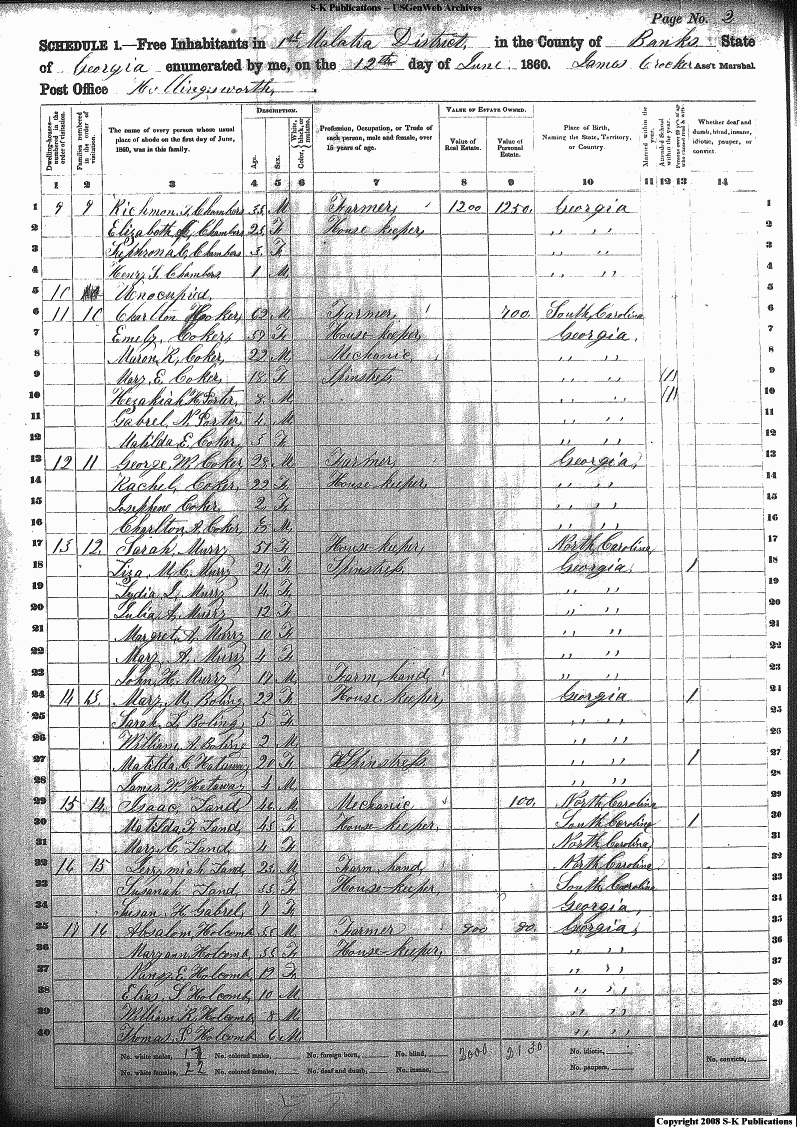 S-K Publications – USGenWeb Archives
Page No. 3
SCHEDULE 1.—Free Inhabitants in 1st Malatra District, in the County of Banks State
of Georgia enumerated by me, on the 12th day of June 1860. James Crocker Ass't Marshal
Post Office Hollingsworth
Dwelling-houses numbered in the order of visitation. Families numbered in the order of visitation. The name of every person whose usual place of abode on the first day of June, 1860, was in this family. DESCRIPTION. Age. Sex. Color, White, black, or mulatto. Profession, Occupation, or Trade of each person, male and female, over 15 years of age. VALUE OF ESTATE OWNED. Value of Real Estate. Value of Personal Estate. Place of Birth, Naming the State, Territory, or Country. Married within the year. Attended School within the year. Whether deaf and dumb, blind, insane, idiotic, pauper, or convict.
1 2 3 4 5 6 7 8 9 10 11 12 13 14
1 9 9 Chambers 35 M Farmer 1200 1250 Georgia 1
2 Elizabeth Chambers 25 F House keeper " " 2
3 C. Chambers 3 F " " 3
4 Henry S. Chambers 1 M " " 4
5 10 Unocupied 5
6 11 10 Charlton Hooker 62 M Farmer 700 South Carolina 6
7 Emely Coker 59 F House keeper Georgia 7
8 Miron R. Coker 22 M Mechanic " " 8
9 Mary E. Coker 18 F Spinstrets " " (1) 9
10 Hezakiah H. Porter 8 M " " (1) 10
11 Gabrel N. Porter 4 M " " 11
12 Matilda E. Coker 3 F " " 12
13 12 11 George W. Coker 28 M Farmer Georgia 13
14 Rachel Coker 22 F House keeper " " 14
15 Josephene Coker 2 F " " 15
16 Charlton A. Coker M " " 16
17 13 12 Sarah Murry 51 F House keeper North Carolina 17
18 Liza M. C. Murry 24 F Spinstress Georgia 1 18
19 Lydia L. Murry 14 F " " 19
20 Julia A. Murry 12 F " " 20
21 Margret A. Murry 10 F " " 21
22 Mary A. Murry 4 F " " 22
23 John H. Murry M Farm hand " " 23
24 14 13 Mary M. Boling 22 F House keeper Georgia 1 24
25 Sarah L. Boling 5 F " " 25
26 William A. Boling 2 M " " 26
27 Matilda C. Hataway 20 F Spinstress " " 1 27
28 James W. Hataway 4 M " " 28
29 15 14 Isaac Land 46 M Mechanic 100 North Carolina 29
30 Matilda F. Land 45 F House keeper South Carolina 1 30
31 Mary C. Land 4 F North Carolina 31
32 16 15 Jerrymiah Land 23 M Farm hand North Carolina 32
33 Susanah Land 33 F House keeper South Carolina 33
34 Susan H. Gabrel 7 F Georgia 34
35 17 16 Absalom Holcomb 55 M Farmer 800 80 Georgia 35
36 Maryann Holcomb 55 F House keeper " " 36
37 Nancy E. Holcomb 19 F " " 37
38 Elias S. Holcomb 10 M " " 38
39 William R. Holcomb 8 M " " 39
40 Thomas P. Holcomb 6 M " " 40
No. white males, No. colored males, No. foreign born, No. blind, 2000 2130 No. idiotic, No. convicts,
No. white females, 22 No. colored females, No. deaf and dumb, No. insane, No. paupers,
Copyright 2008 S-K Publications